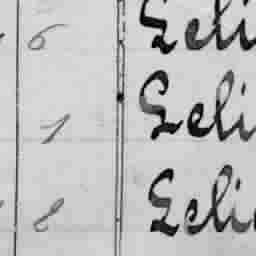 6 Geli
1 Geli
8 Geli